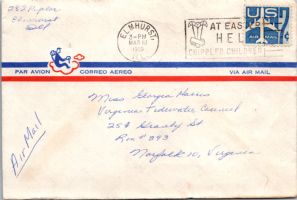 282 Poplar
Elmhurst
ELMHURST
3-PM
MAR 10
AT EASTER
HELP
CRIPPLED CHILDREN
US
AIR MAIL
PAR AVION
CORREO AEREO
VIA AIR MAIL
Miss Georgia Harris
Virginia Tidewater Council
254 Granby St
Room # 393
Norfolk 10, Virginia
Air Mail